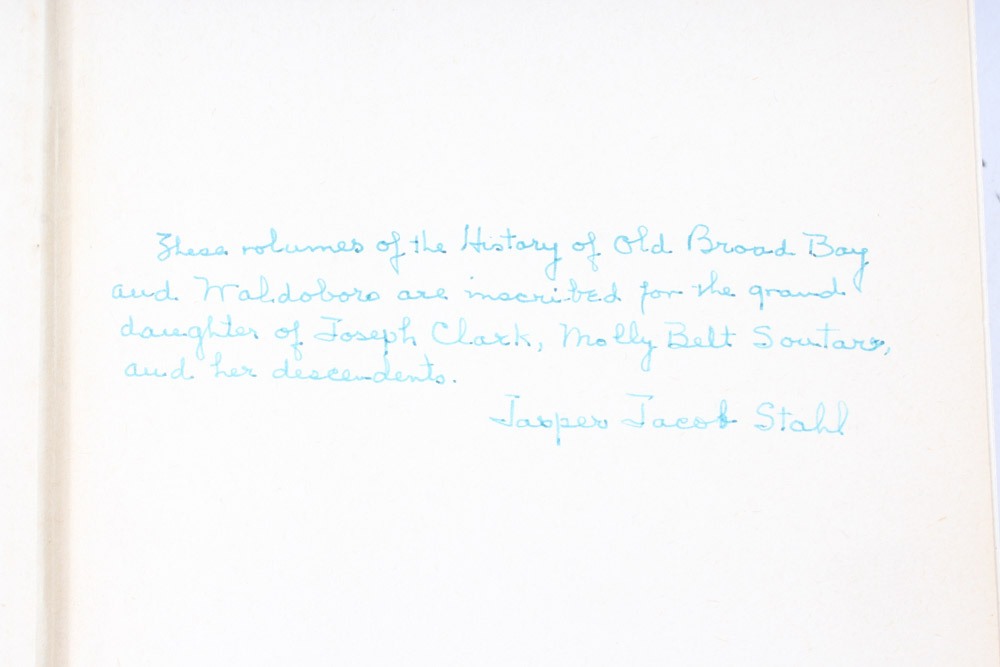 These volumes of the History of Old Broad Bay
and Waldoboro are inscribed for the grand
daughter of Joseph Clark, Molly Belt Soutar,
and her descendents.
Jasper Jacob Stahl